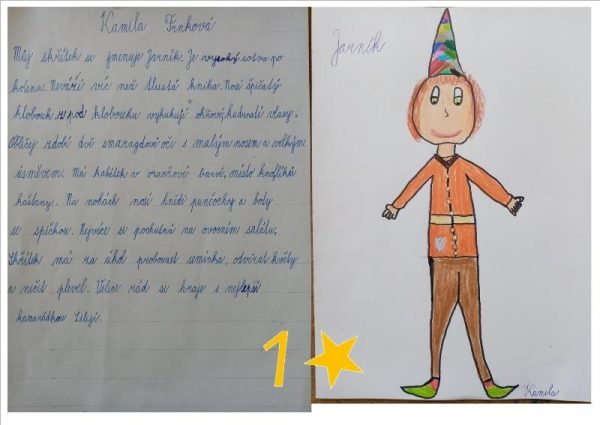 Kamila Trnková
Můj skřítek se jmenuje Jarník. Je vysoký sotva po
kolena. Neváží víc než tlustá kniha. Nosí špičatý
klobouk zpod kloboučku vykukují okrové, kudrnaté vlasy.
Obličej zdobí dvě smaragdové oči s malým nosem a velkým
úsměvem. Má kabátek v oranžové barvě, místo knoflíků
kaštany. Na nohách nosí hnědé punčochy a boty
se špičkou. Nejvíce si pochutná na ovocném salátu.
Skřítek má za úkol probouzet semínka, otvírat květy
a ničit plevel. Velice rád si hraje s nejlepší
kamarádkou
Jarník
1
Kamila